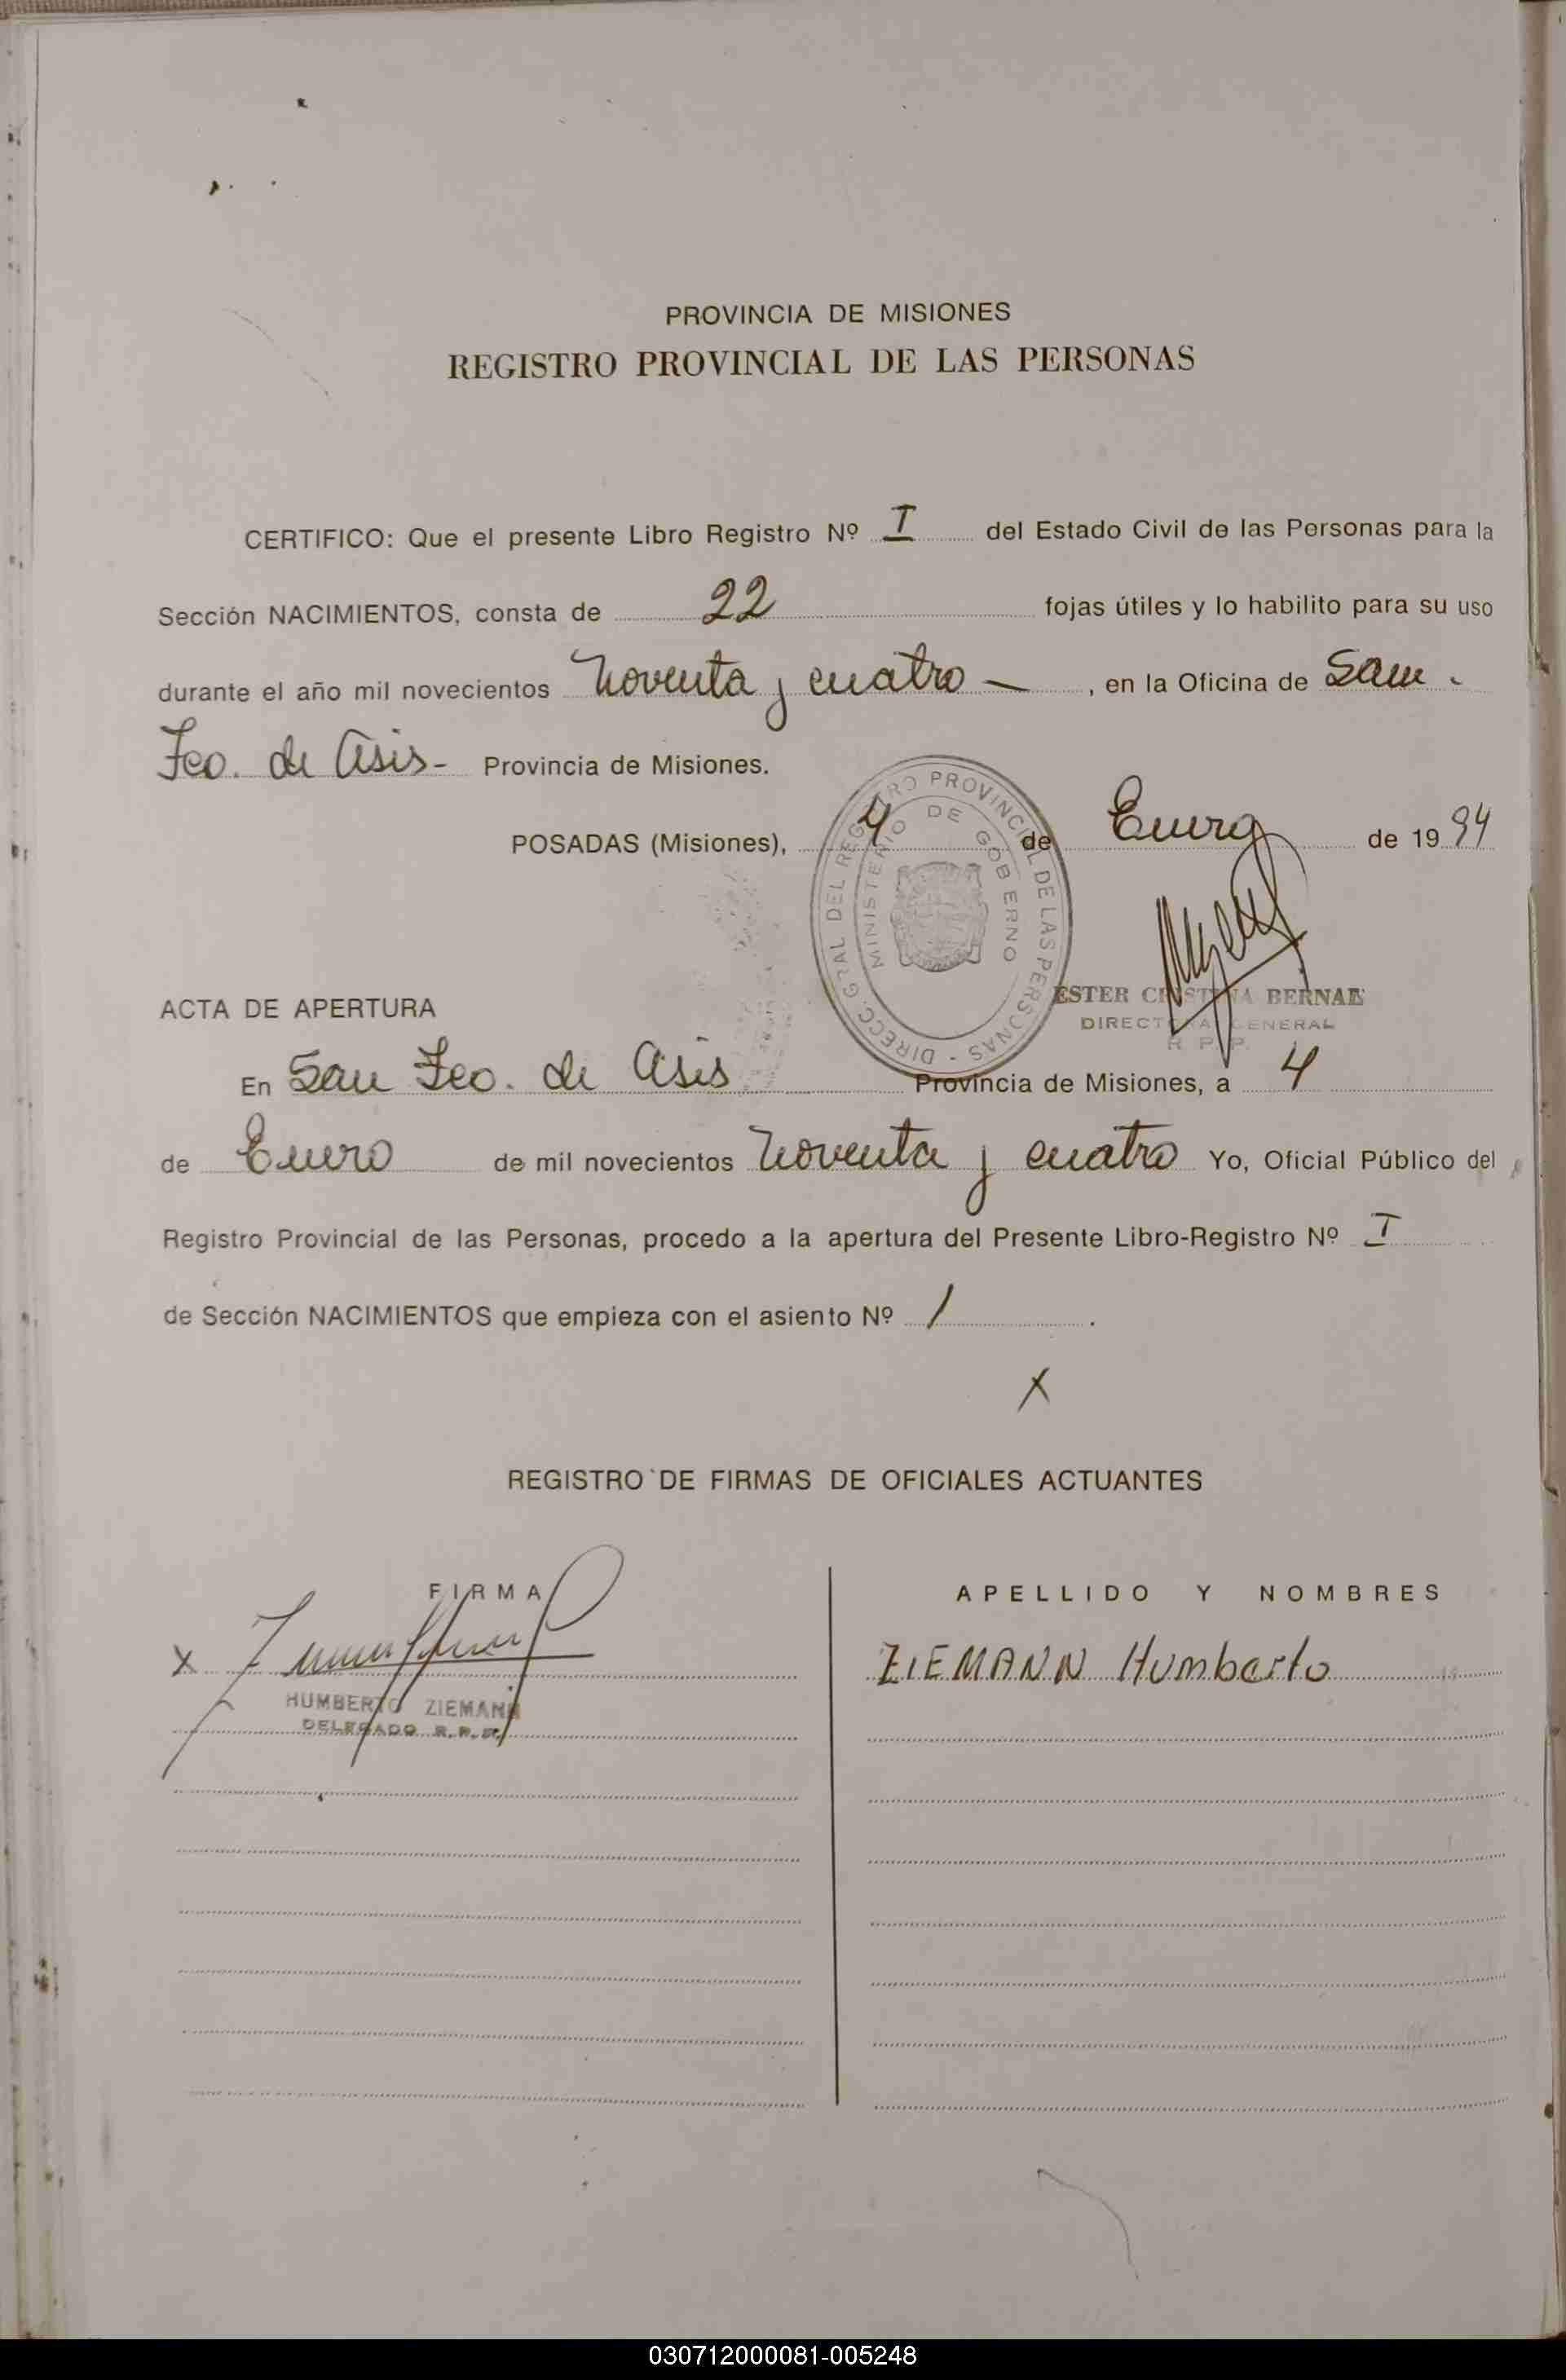 PROVINCIA DE MISIONES
REGISTRO PROVINCIAL DE LAS PERSONAS
CERTIFICO: Que el presente Libro Registro Nº I del Estado Civil de las Personas para la
Sección NACIMIENTOS, consta de 22 fojas útiles y lo habilito para su uso
durante el año mil novecientos Noventa y cuatro - , en la Oficina de San -
Fco. de Asis - Provincia de Misiones.
POSADAS (Misiones), 4 de Enero de 1994
DIRECC. GRAL DEL REGISTRO PROVINCIAL DE LAS PERSONAS -
MINISTERIO DE GOBIERNO
ESTER CRISTINA BERNAL
DIRECTORA GENERAL
R. P. P.
ACTA DE APERTURA
En San Fco. de Asis Provincia de Misiones, a 4
de Enero de mil novecientos Noventa y cuatro Yo, Oficial Público del
Registro Provincial de las Personas, procedo a la apertura del Presente Libro-Registro Nº I
de Sección NACIMIENTOS que empieza con el asiento Nº 1 .
X
REGISTRO DE FIRMAS DE OFICIALES ACTUANTES
FIRMA APELLIDO Y NOMBRES
X ZIEMANN Humberto
HUMBERTO ZIEMANN
DELEGADO R.P.P.
030712000081-005248